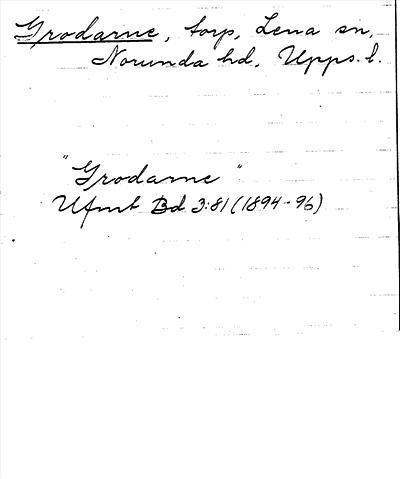 Grodarne, torp, Lena sn,
Norunda hd, Upps. l.
"Grodarne"
Ufmt Bd 3:81 (1894-96)